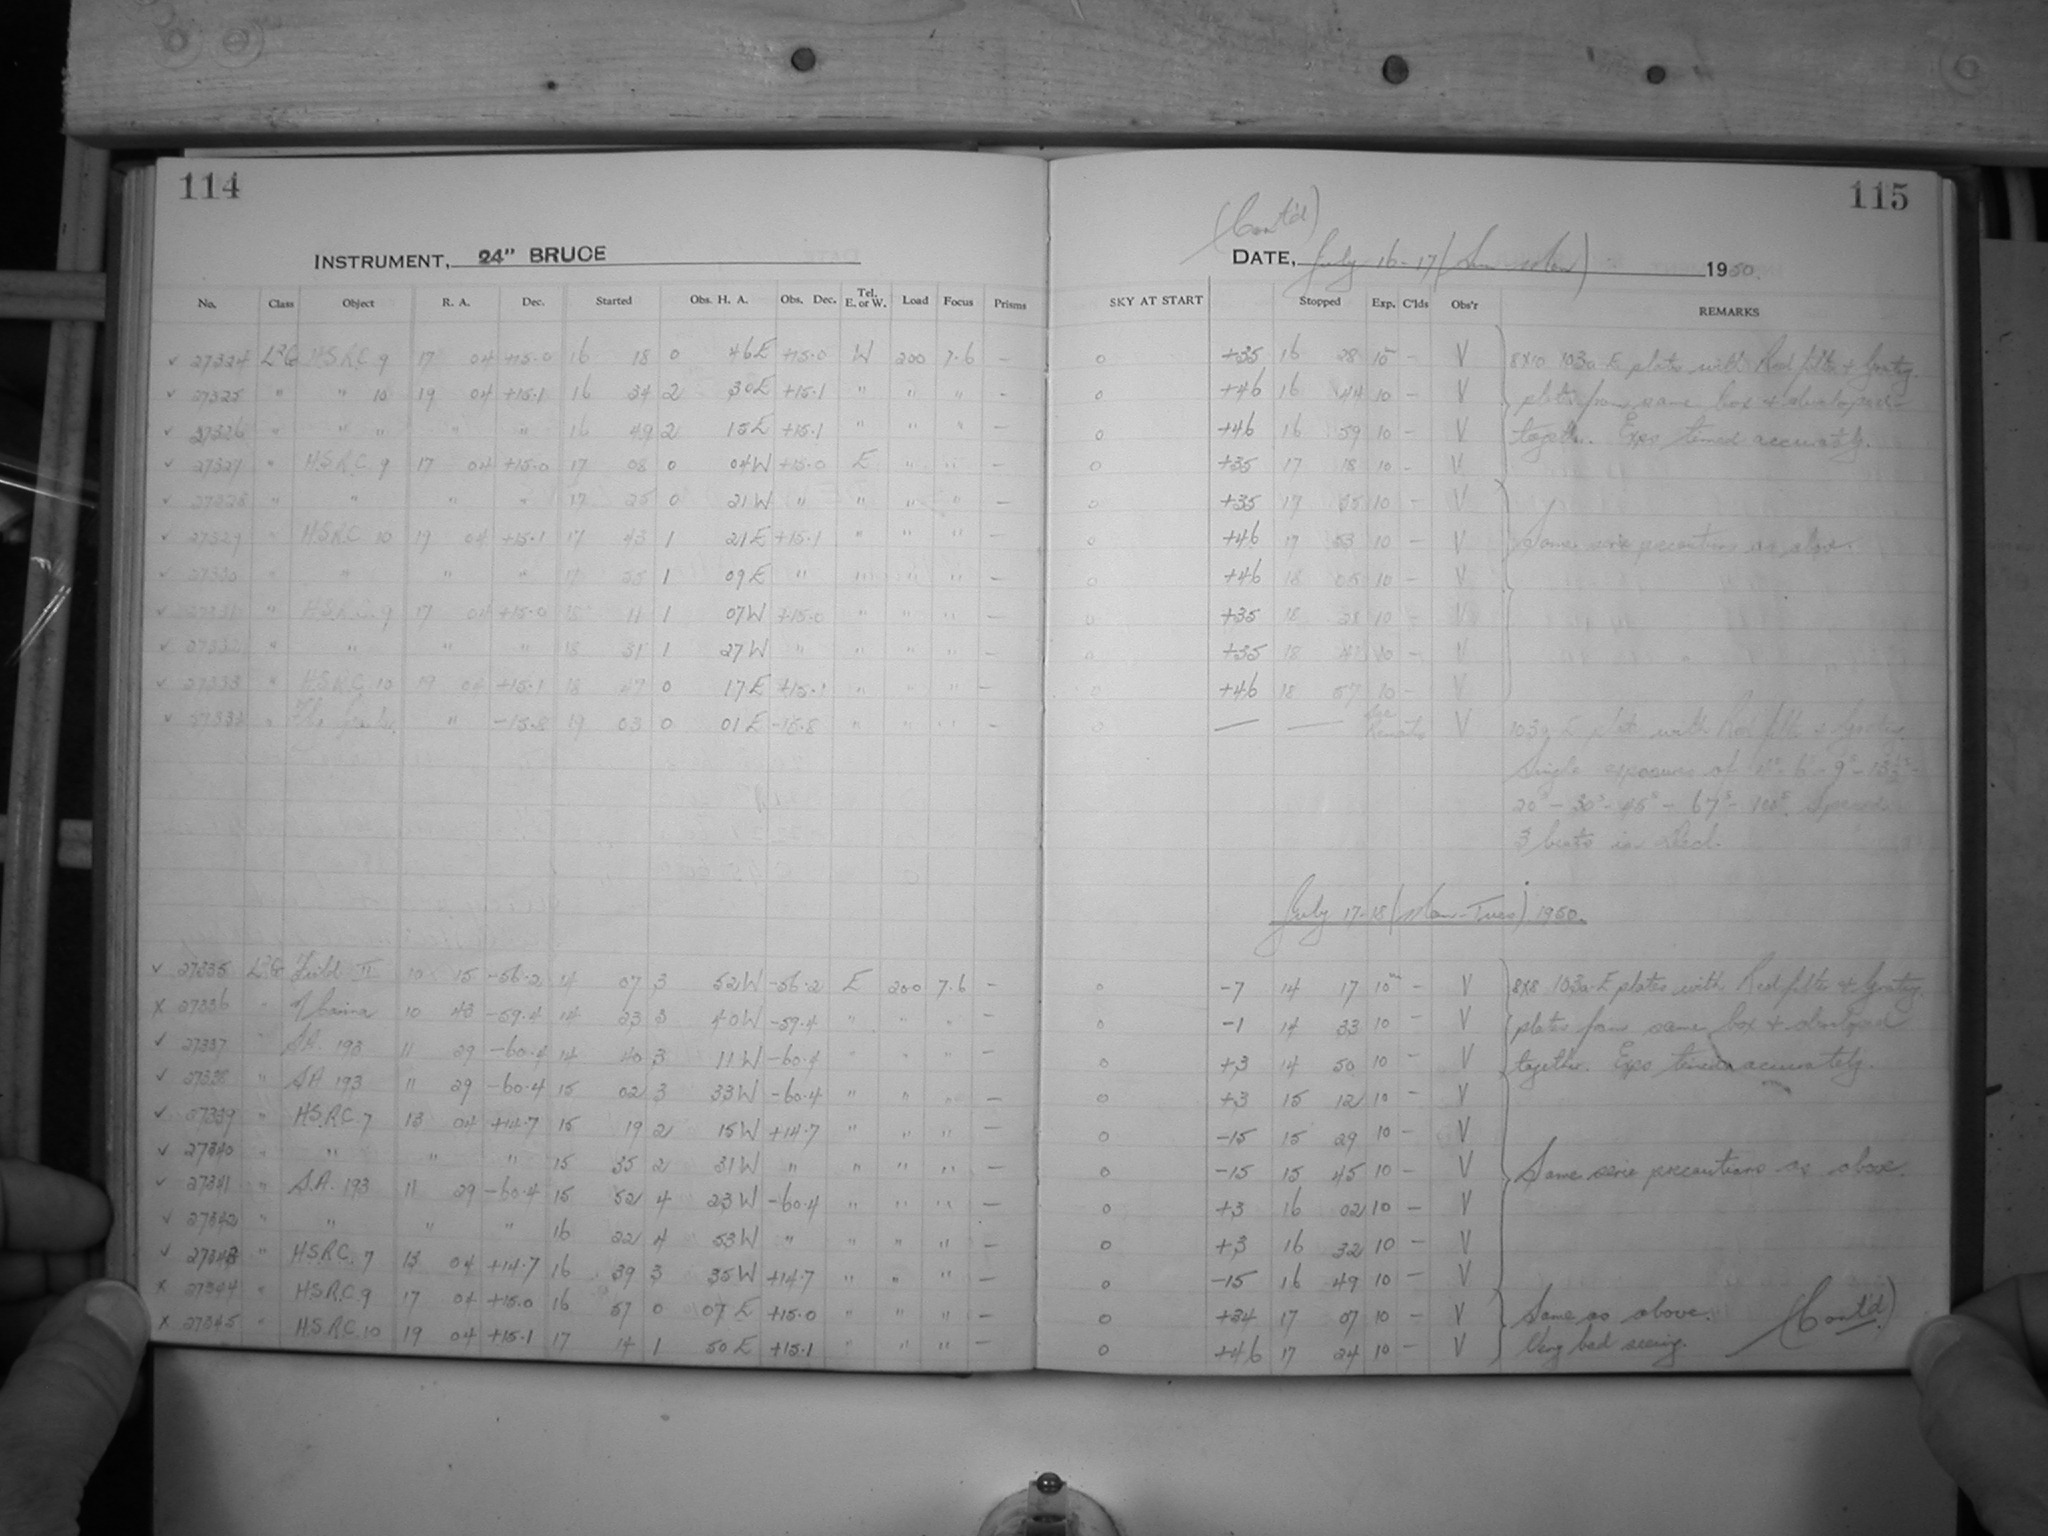 114
INSTRUMENT, 24" BRUCE
No. Class Object R. A. Dec. Started Obs. H. A. Obs. Dec. Tel. E. or W. Load Focus Prisms
✓ 27324 L²G H.S.R.C. 9 17 04 +15.0 16 18 0 46E +15.0 W 200 7.6 –
✓ 27325 " " 10 19 04 +15.1 16 34 2 30E +15.1 " " " –
✓ 27326 " " " " " 16 49 2 15E +15.1 " " " –
✓ 27327 " H.S.R.C. 9 17 04 +15.0 17 08 0 04W +15.0 E " " –
✓ 27328 " " " " 17 25 0 21W " " " " –
✓ 27329 " H.S.R.C. 10 19 04 +15.1 17 43 1 21E +15.1 " " " –
✓ 27330 " " " " 17 55 1 09E " " " " –
✓ 27331 " H.S.R.C. 9 17 04 +15.0 18 11 1 07W +15.0 " " " –
✓ 27332 " " " " 18 31 1 27W " " " " –
✓ 27333 " H.S.R.C. 10 19 04 +15.1 18 47 0 17E +15.1 " " " –
✓ " " -15.8 19 03 0 01E -15.8 " " " –
✓ 27335 L²G Field II 10 15 -56.2 14 07 3 52W -56.2 E 200 7.6 –
X 27336 " η Carina 10 43 -59.4 14 23 3 40W -59.4 " " " –
✓ 27337 " S.A. 193 11 29 -60.4 14 40 3 11W -60.4 " " " –
✓ 27338 " S.A. 193 11 29 -60.4 15 02 3 33W -60.4 " " " –
✓ 27339 " H.S.R.C. 7 13 04 +14.7 15 19 2 15W +14.7 " " " –
✓ 27340 " " " " 15 35 2 31W " " " " –
✓ 27341 " S.A. 193 11 29 -60.4 15 52 4 23W -60.4 " " " –
✓ 27342 " " " " 16 22 4 53W " " " " –
✓ 27343 " H.S.R.C. 7 13 04 +14.7 16 39 3 35W +14.7 " " " –
X 27344 " H.S.R.C. 9 17 04 +15.0 16 57 0 07E +15.0 " " " –
X 27345 " H.S.R.C. 10 19 04 +15.1 17 14 1 50E +15.1 " " " –
115
(Cont'd)
DATE, July 16-17 (Sun-Mon) 1950.
SKY AT START Stopped Exp. C'lds Obs'r REMARKS
0 +35 16 28 10ᵐ – V 8x10 103a-E plates with Red filter & Grating.
0 +46 16 44 10 – V plates from same box & developed
0 +46 16 59 10 – V together. Expo timed accurately.
0 +35 17 18 10 – V
0 +35 17 35 10 – V
0 +46 17 53 10 – V Same series precautions as above.
0 +46 18 05 10 – V
0 +35 18 21 10 – V
0 +35 18 41 10 – V
0 +46 18 57 10 – V
0 — — See Remarks V 103a-E plate with Red filter & Grating.
Single exposures of 4ˢ - 6ˢ - 9ˢ - 13½ˢ -
20ˢ - 30ˢ - 45ˢ - 67ˢ - 100ˢ. Spaced
3 beats in Decl.
July 17-18 (Mon-Tues) 1950.
0 -7 14 17 10ᵐ – V 8x8 103a-E plates with Red filter & Grating.
0 -1 14 33 10 – V plates from same box & developed
0 +3 14 50 10 – V together. Expo timed accurately.
0 +3 15 12 10 – V
0 -15 15 29 10 – V
0 -15 15 45 10 – V Same series precautions as above.
0 +3 16 02 10 – V
0 +3 16 32 10 – V
0 -15 16 49 10 – V
0 +34 17 07 10 – V Same as above. (Cont'd)
0 +46 17 24 10 – V Very bad seeing.